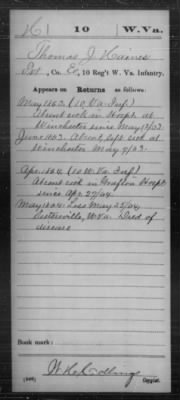 H | 10 | W.Va.
Thomas J Haines
Pvt, Co. E, 10 Reg't W. Va. Infantry.
Appears on Returns as follows:
May 1863. (10 Va Inf)
Absent sick in Hospt. at
Winchester since May 12/63.
June 1863. Absent, left sick at
Winchester May 9/63.
Apr. 1864. (10 W. Va Inf)
Absent sick in Grafton Hospt
since Apr. 27/64.
May 1864. Loss May 23/64
W Va. Died of
disease
Book mark:
(546)
Copyist.